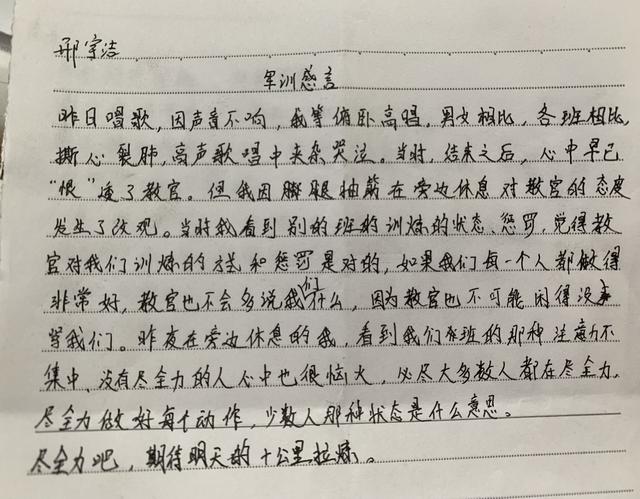 邢宇洁
军训感言
昨日唱歌，因声音不响，我等俯卧高唱。男女相比，各班相比，
撕心裂肺，高声歌唱中夹杂哭泣。当时，结束之后，心中早已
“恨”透了教官。但我因脚腿抽筋在旁边休息对教官的态度
发生了改观。当时我看到别的班的训炼的状态、惩罚，觉得教
官对我们训炼的方式和惩罚是对的，如果我们每一个人都做得
非常好，教官也不会多说我们什么，因为教官也不可能闲得没事
骂我们。昨夜在旁边休息的我，看到我们班的那种注意力不
集中、没有尽全力的人心中也很恼火，必尽大多数人都在尽全力，
尽全力做好每个动作，少数人那种状态是什么意思。
尽全力吧，期待明天的十公里拉炼。